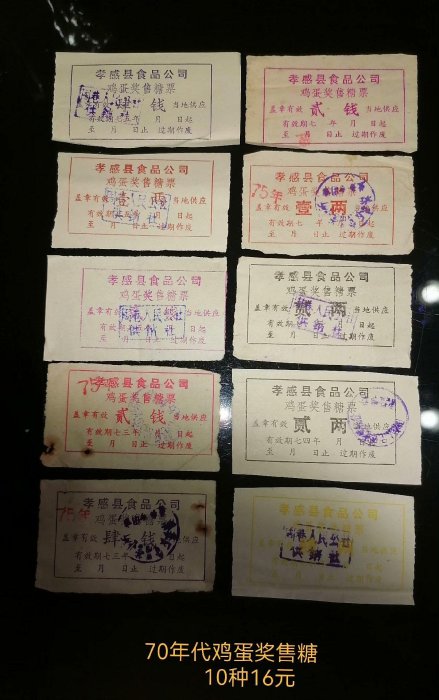 孝感县食品公司
鸡蛋奖售糖票
肆 钱 当地供应
有效期七五年 月 日起
至 月 日止 过期作废
孝感县食品公司
鸡蛋奖售糖票
盖章有效 贰 钱 当地供应
有效期七 年 月 日起
至 月 日止 过期作废
孝感县食品公司
鸡蛋奖售糖票
盖章有效 壹 两 当地供应
有效期 年 月 日起
至 月 日止 过期作废
孝感县食品公司
鸡蛋奖售糖票
75年
盖章有效 壹 两 供应
有效期七 年 月 日起
至 月 日止 过期作废
孝感县食品公司
鸡蛋奖售糖票
盖章有效 当地供应
人民公社
供销社
有效期七三年 月 日起
至 月 日止 过期作废
孝感县食品公司
鸡蛋奖售糖票
盖章有效 贰 两 当地供应
人民公社
供销社
有效期 年 月 日起
至 月 日止 过期作废
孝感县食品公司
75
鸡蛋奖售糖票
盖章有效 贰 钱 当地供应
有效期七三年 月 日起
至 月 日止 过期作废
孝感县食品公司
鸡蛋奖售糖票
盖章有效 贰 两 当地供应
有效期七四年 月 日起
至 月 日止 过期作废
孝感县食品公司
75年
鸡蛋奖售糖票
盖章有效 肆 钱 当地供应
有效期七三年 月 日起
至 月 日止 过期作废
孝感县食品公司
盖章有效 当地供应
人民公社
供销社
有效期 日起
至 月 日止 过期作废
70年代鸡蛋奖售糖
10种16元